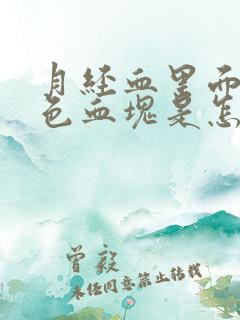 月经血里面
色血块是怎
曾毅
未经同意禁止转载